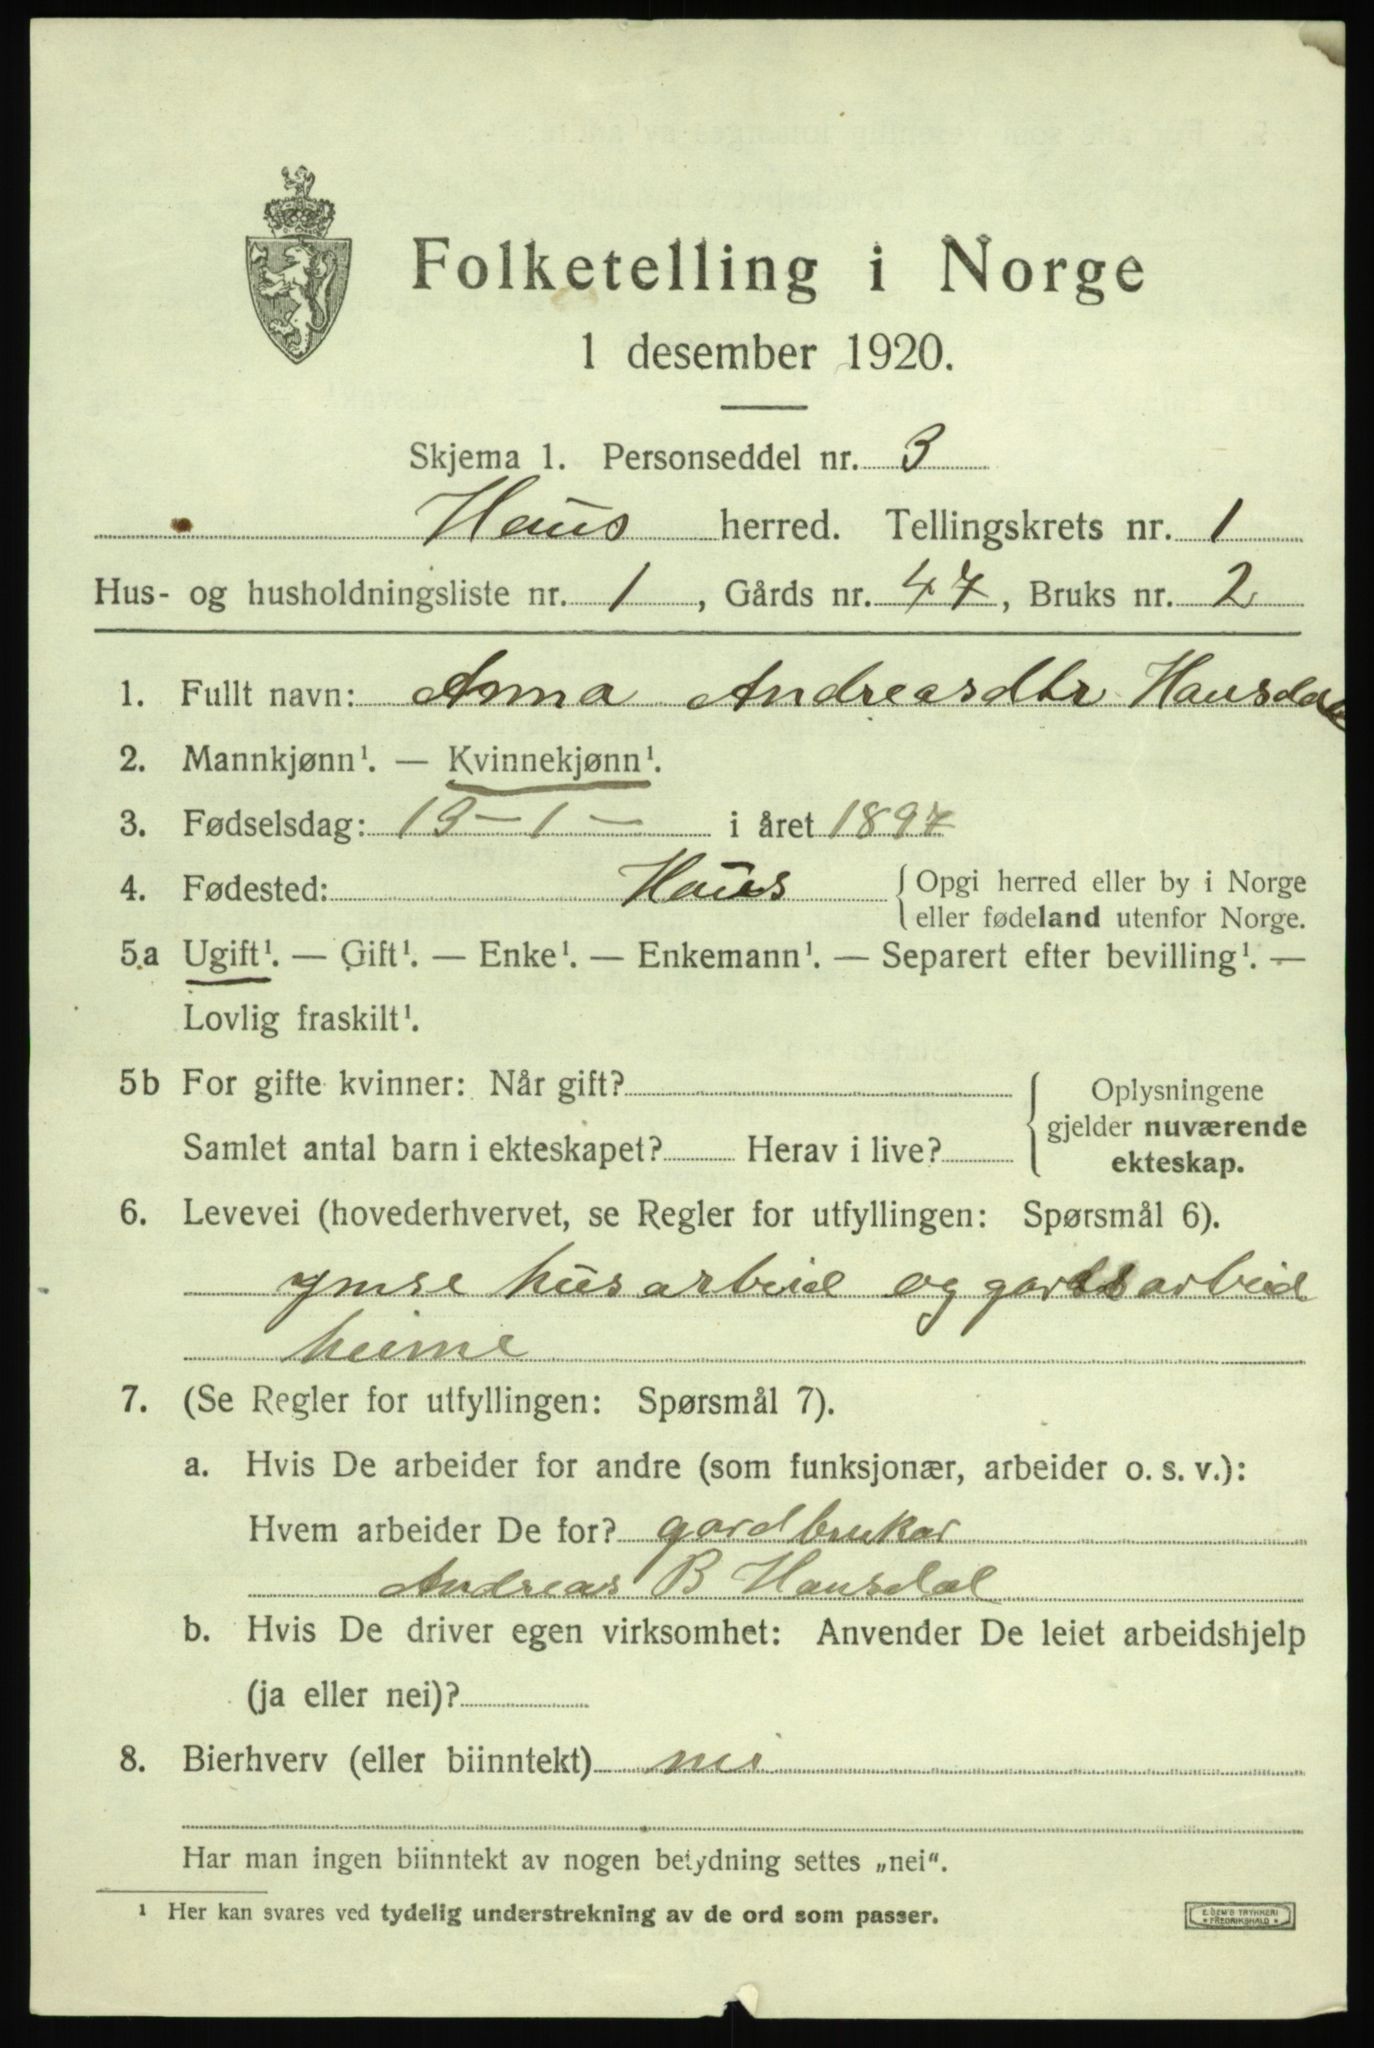 Folketelling i Norge
1 desember 1920.
Skjema 1. Personseddel nr. 3
Haus herred. Tellingskrets nr. 1
Hus- og husholdningsliste nr. 1, Gårds nr. 47, Bruks nr. 2
1. Fullt navn: Anna Andreasdtr Hausdal
2. Mannkjønn¹. — Kvinnekjønn¹.
3. Fødselsdag: 13-1- i året 1897
4. Fødested: Haus { Opgi herred eller by i Norge
eller fødeland utenfor Norge.
5a Ugift¹. — Gift¹. — Enke¹. — Enkemann¹. — Separert efter bevilling¹. —
Lovlig fraskilt¹.
5b For gifte kvinner: Når gift? { Oplysningene
gjelder nuværende
Samlet antal barn i ekteskapet? Herav i live? ekteskap.
6. Levevei (hovederhvervet, se Regler for utfyllingen: Spørsmål 6).
ymse husarbeid og gardsarbeid
heime
7. (Se Regler for utfyllingen: Spørsmål 7).
a. Hvis De arbeider for andre (som funksjonær, arbeider o. s. v.):
Hvem arbeider De for? gardbrukar
Andreas B Hausdal
b. Hvis De driver egen virksomhet: Anvender De leiet arbeidshjelp
(ja eller nei)?
8. Bierhverv (eller biinntekt) nei
Har man ingen biinntekt av nogen betydning settes „nei“.
¹ Her kan svares ved tydelig understrekning av de ord som passer.
E. SEM'S TRYKKERI
* FREDRIKSHALD *